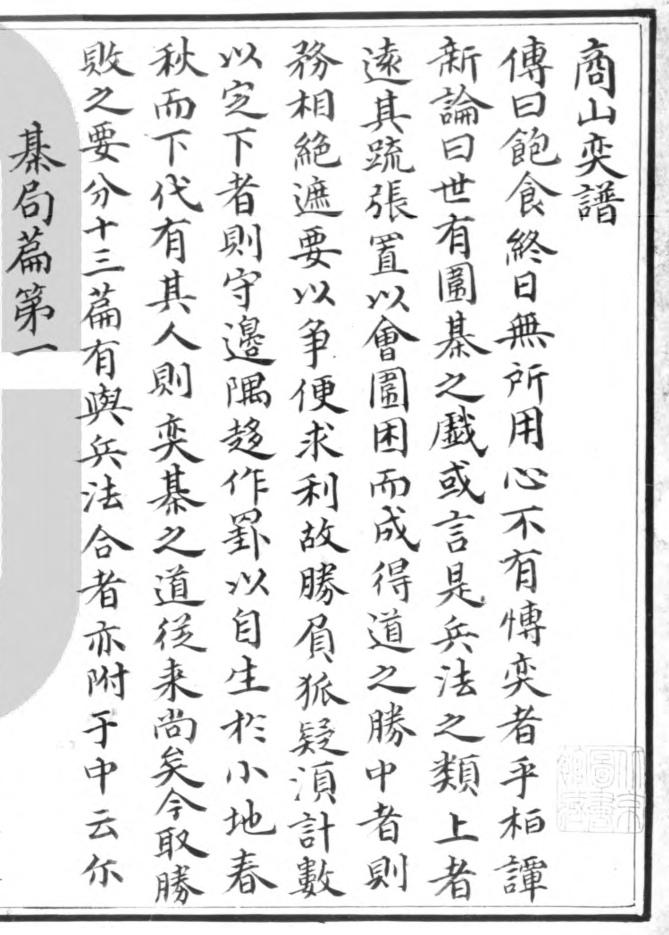 商山奕譜
傳曰飽食終日無所用心不有愽奕者乎桓譚
新論曰世有圍棊之戲或言是兵法之類上者
遠其踈張置以會圍困而成得道之勝中者則
務相絕遮要以争便求利故勝負狐疑湏計數
以定下者則守邊隅趍作罫以自生於小地春
秋而下代有其人則奕棊之道從来尚矣今取勝
敗之要分十三篇有與兵法合者亦附于中云尓
棊局篇第一